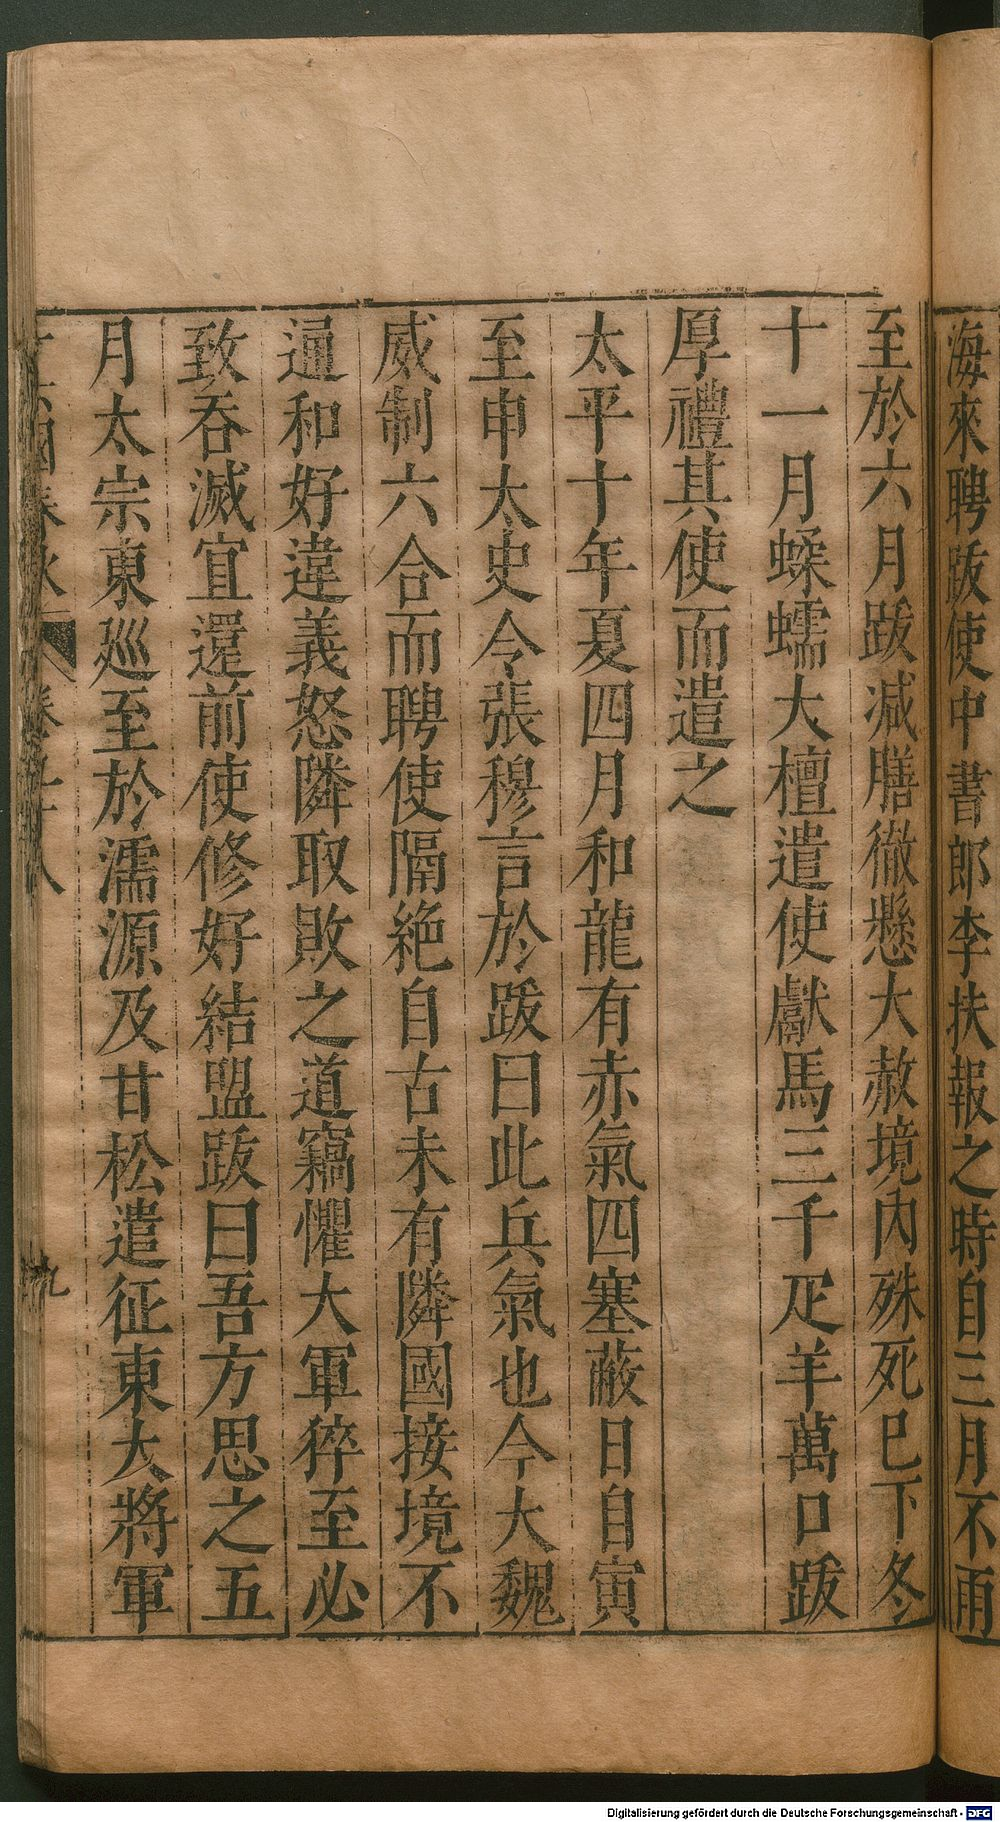 海來聘跋使中書郎李扶報之時自三月不雨
至於六月跋減膳徹懸大赦境內殊死巳下冬
十一月蠑蠕大檀遣使獻馬三千疋羊萬口跋
厚禮其使而遣之
太平十年夏四月和龍有赤氣四塞蔽日自寅
至申太史令張穆言於跋曰此兵氣也今大魏
威制六合而聘使隔絶自古未有隣國接境不
通和好違義怒隣取敗之道竊懼大軍猝至必
致吞滅宜還前使修好結盟跋曰吾方思之五
月太宗東廵至於濡源及甘松遣征東大將軍
國春秋
九
Digitalisierung gefördert durch die Deutsche Forschungsgemeinschaft - DFG